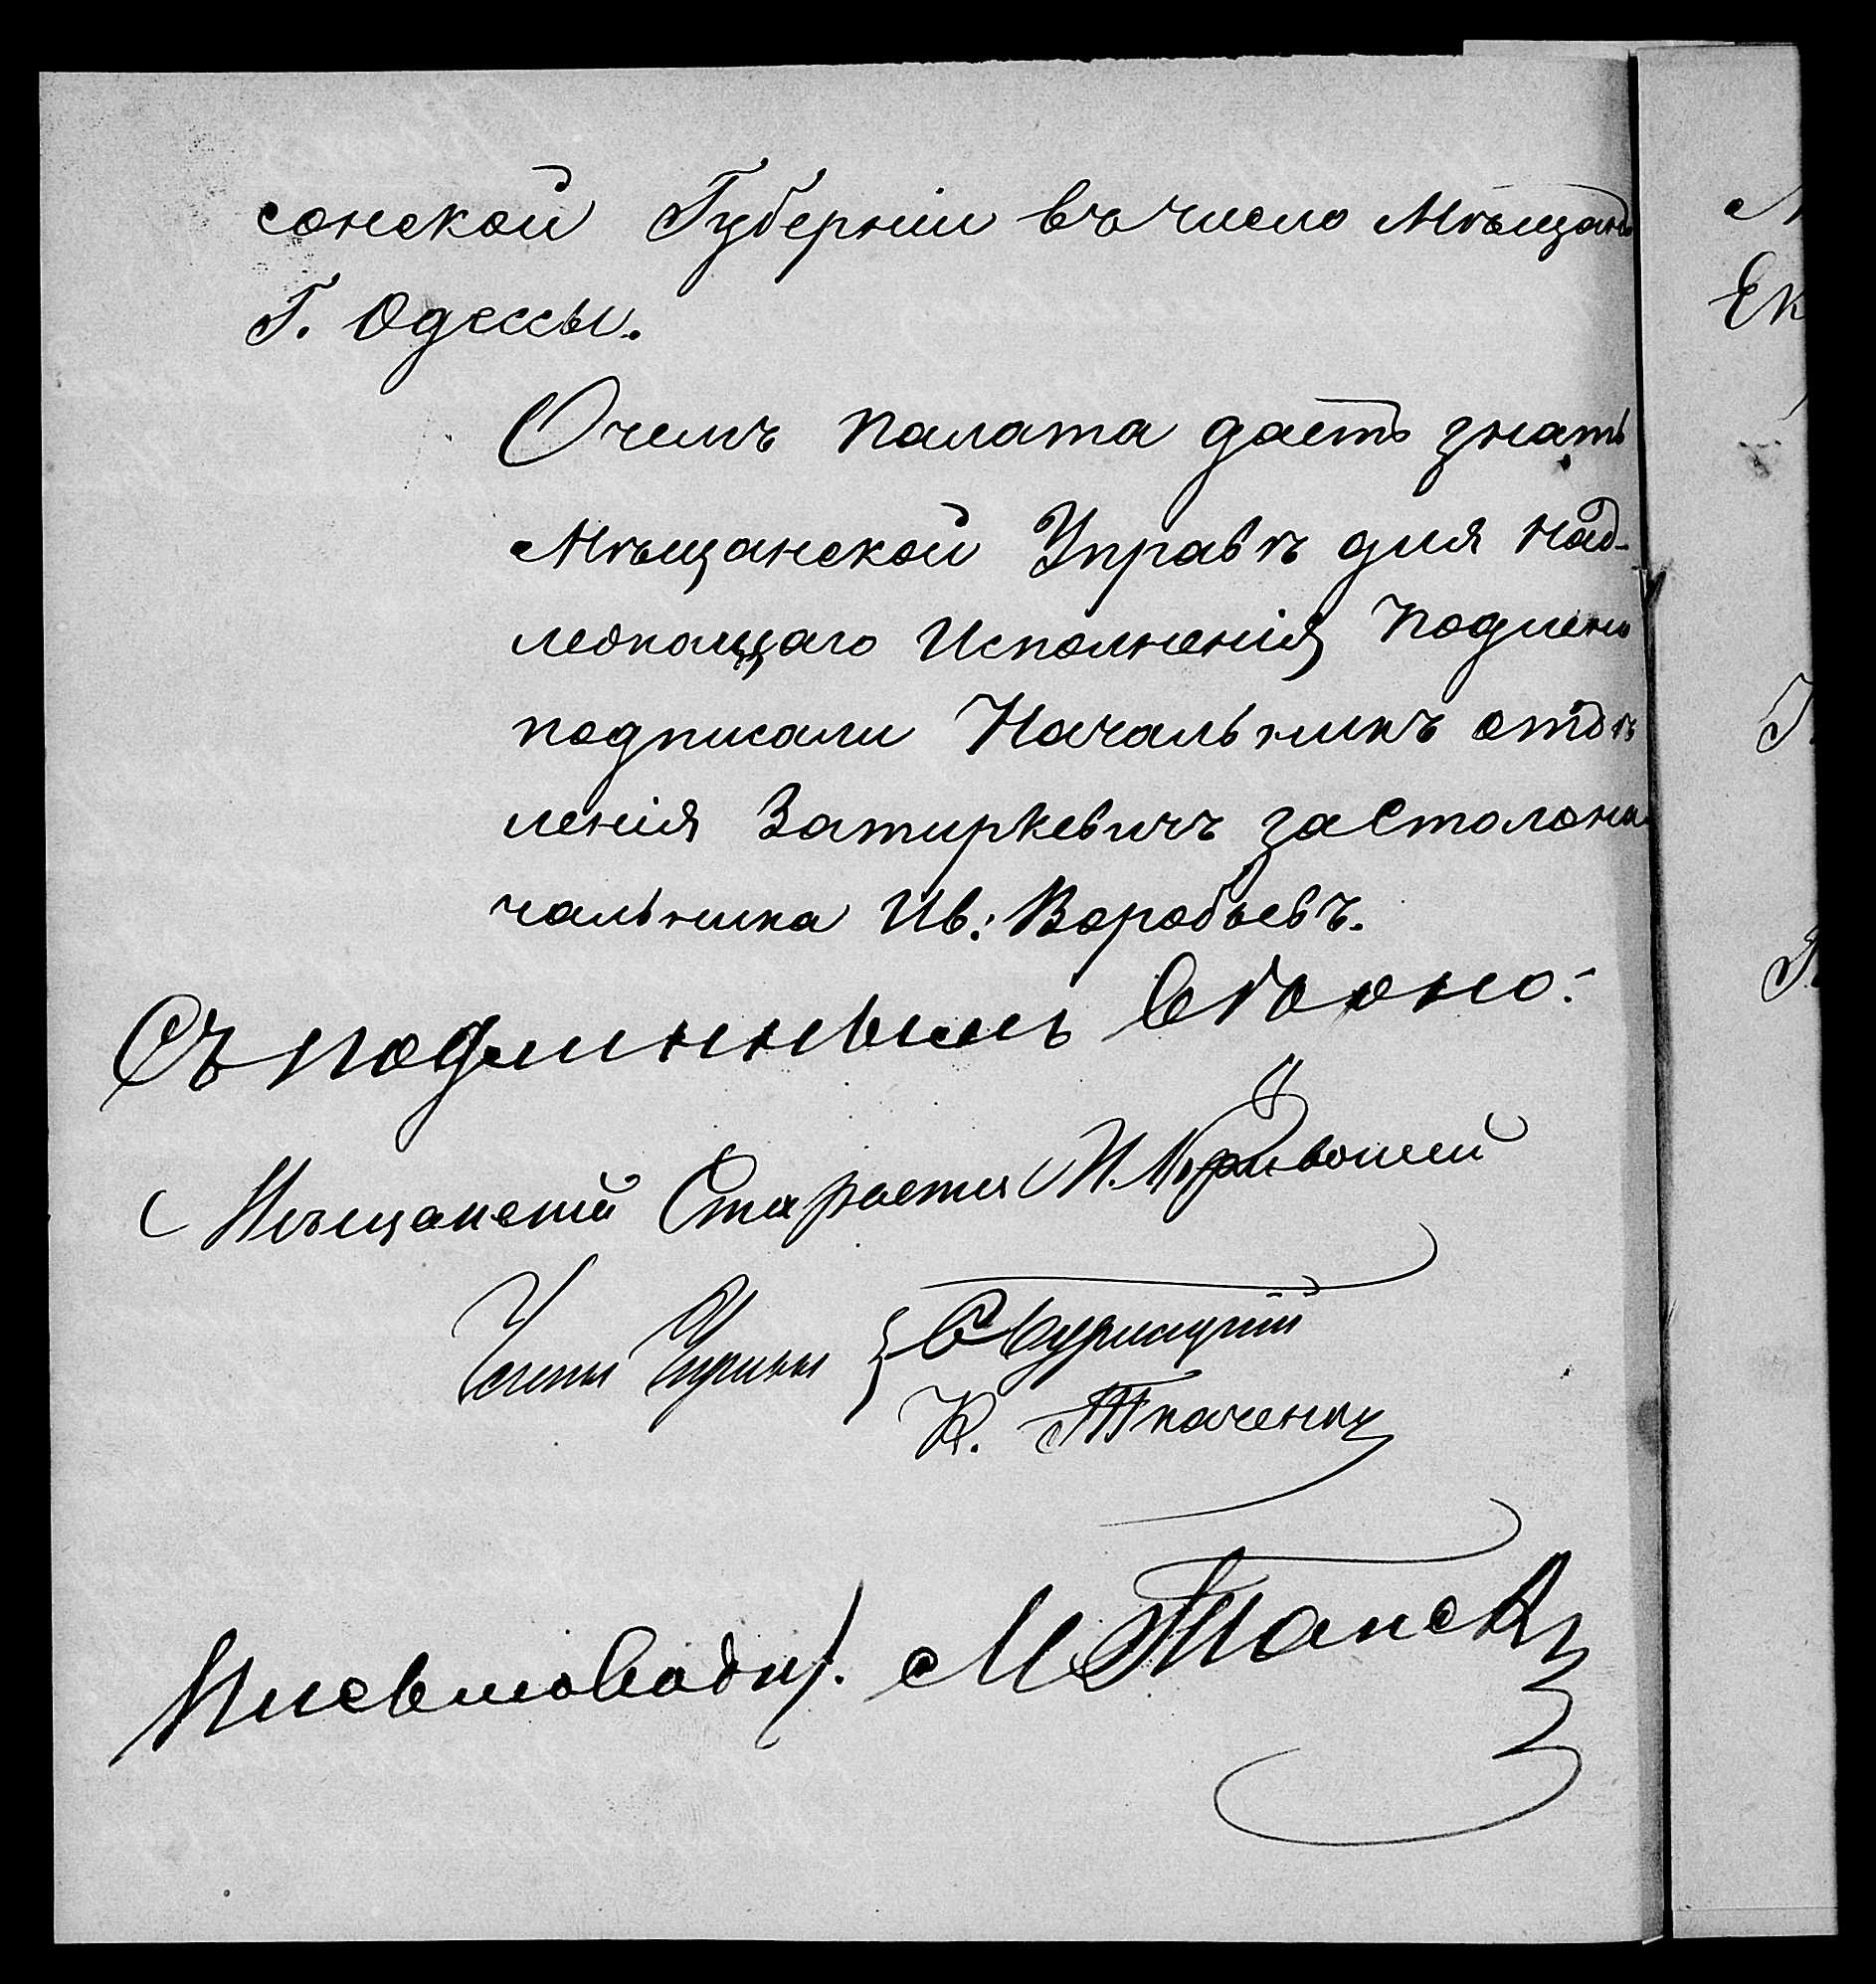 сонской Губерніи въ число Мѣщанъ
Г. Одессы.
О чемъ палата даетъ знать
Мѣщанской Управѣ для над-
лежащаго Исполненія подлено
подписали Начальникъ отдѣ
ленія Затиркевичъ за столона
чальника Ив: Воробьевъ.
Съ подлиннымъ вѣрно:
Мѣщанскій Староста И.
Члены Управы {
К. Ткаченко
Письмоводит. М
Ек